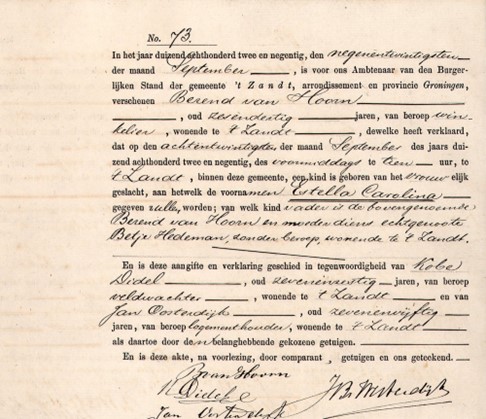 No. 73.
In het jaar duizend achthonderd twee en negentig, den negenentwintigsten
der maand September, is voor ons Ambtenaar van den Burger-
lijken Stand der gemeente 't Zandt, arrondissement en provincie Groningen,
verschenen Berend van Hoorn
, oud zesendertig jaren, van beroep win-
kelier, wonende te 't Zandt, dewelke heeft verklaard,
dat op den achtentwintigsten der maand September des jaars dui-
zend achthonderd twee en negentig, des voormiddags te tien uur, te
't Zandt, binnen deze gemeente, een kind is geboren van het vrouwelijk
geslacht, aan hetwelk de voornamen Estella Carolina
gegeven zullen worden; van welk kind vader is de bovengenoemde
Berend van Hoorn en moeder diens echtgenoote
Betje Hedeman, zonder beroep, wonende te 't Zandt.
En is deze aangifte en verklaring geschied in tegenwoordigheid van Kobe
Didel, oud zevenenzestig jaren, van beroep
veldwachter, wonende te 't Zandt en van
Jan Oosterdijk, oud zevenenvijftig
jaren, van beroep logementhouder, wonende te 't Zandt
als daartoe door den belanghebbende gekozene getuigen.
En is deze akte, na voorlezing, door comparant, getuigen en ons geteekend.
B van Hoorn
K Didel
Jan Oosterdijk